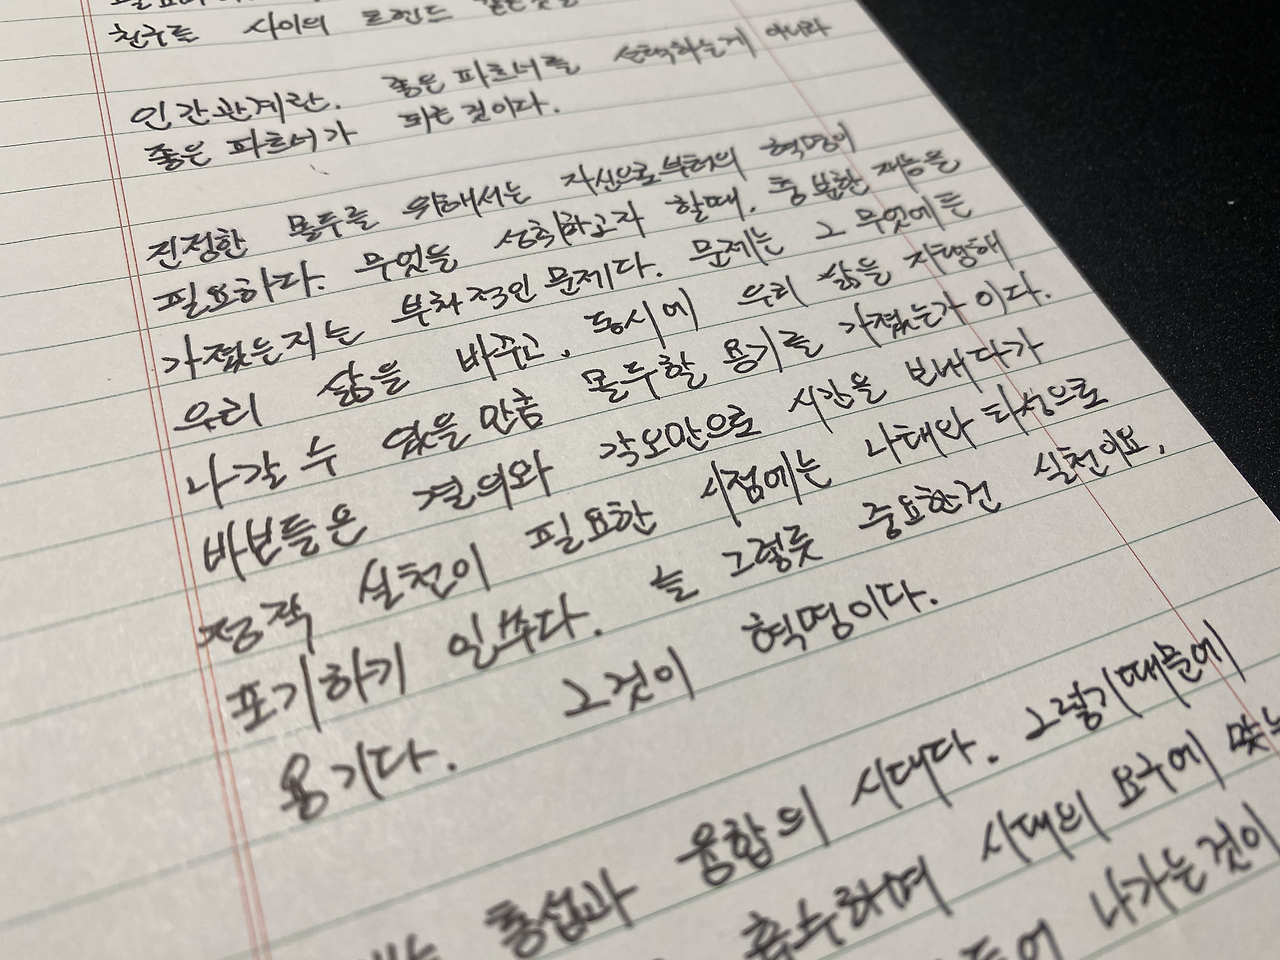 친구들 사이의 트렌드 같은것을
인간관계란. 좋은 파트너를 선택하는게 아니라
좋은 파트너가 되는 것이다.
진정한 몰두를 위해서는 자신으로부터의 혁명이
필요하다. 무엇을 성취하고자 할때. 충분한 재능을
가졌는지는 부차적인 문제다. 문제는 그 무엇에든
우리 삶을 바꾸고, 동시에 우리 삶을 지탱해
나갈 수 있을만큼 몰두할 용기를 가졌는가이다.
바보들은 결의와 각오만으로 시간을 보내다가
정작 실천이 필요한 시점에는 나태와 타성으로
포기하기 일쑤다. 늘 그렇듯 중요한건 실천이요,
용기다. 그것이 혁명이다.
통섭과 융합의 시대다. 그렇기때문에
흡수하며 시대의 요구에 맞는
나가는것이